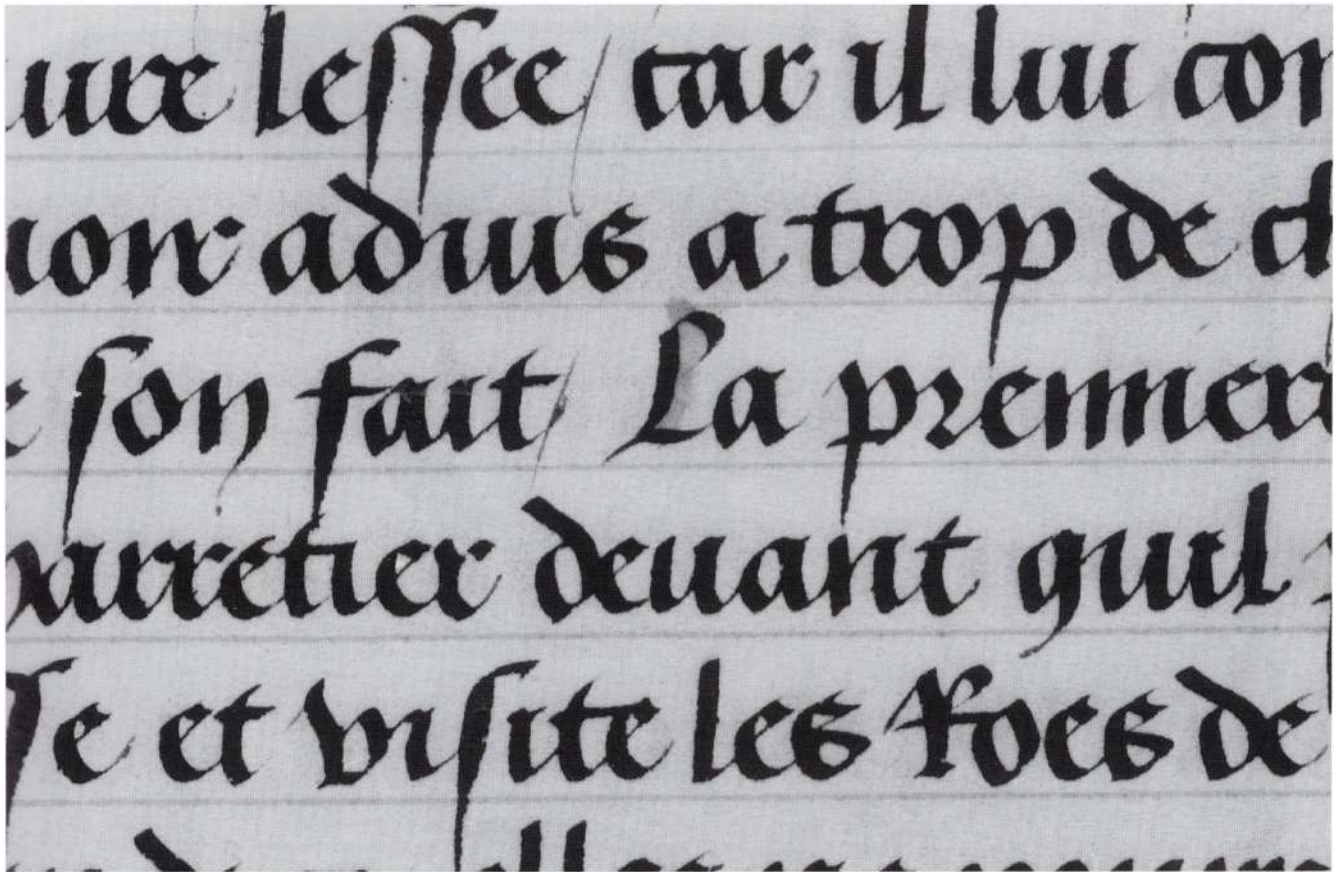 ure lessee / car il luy con
uoir aduis a trop de ch
e son fait / La premier
arretier deuant quil
sse et visite les Roes de